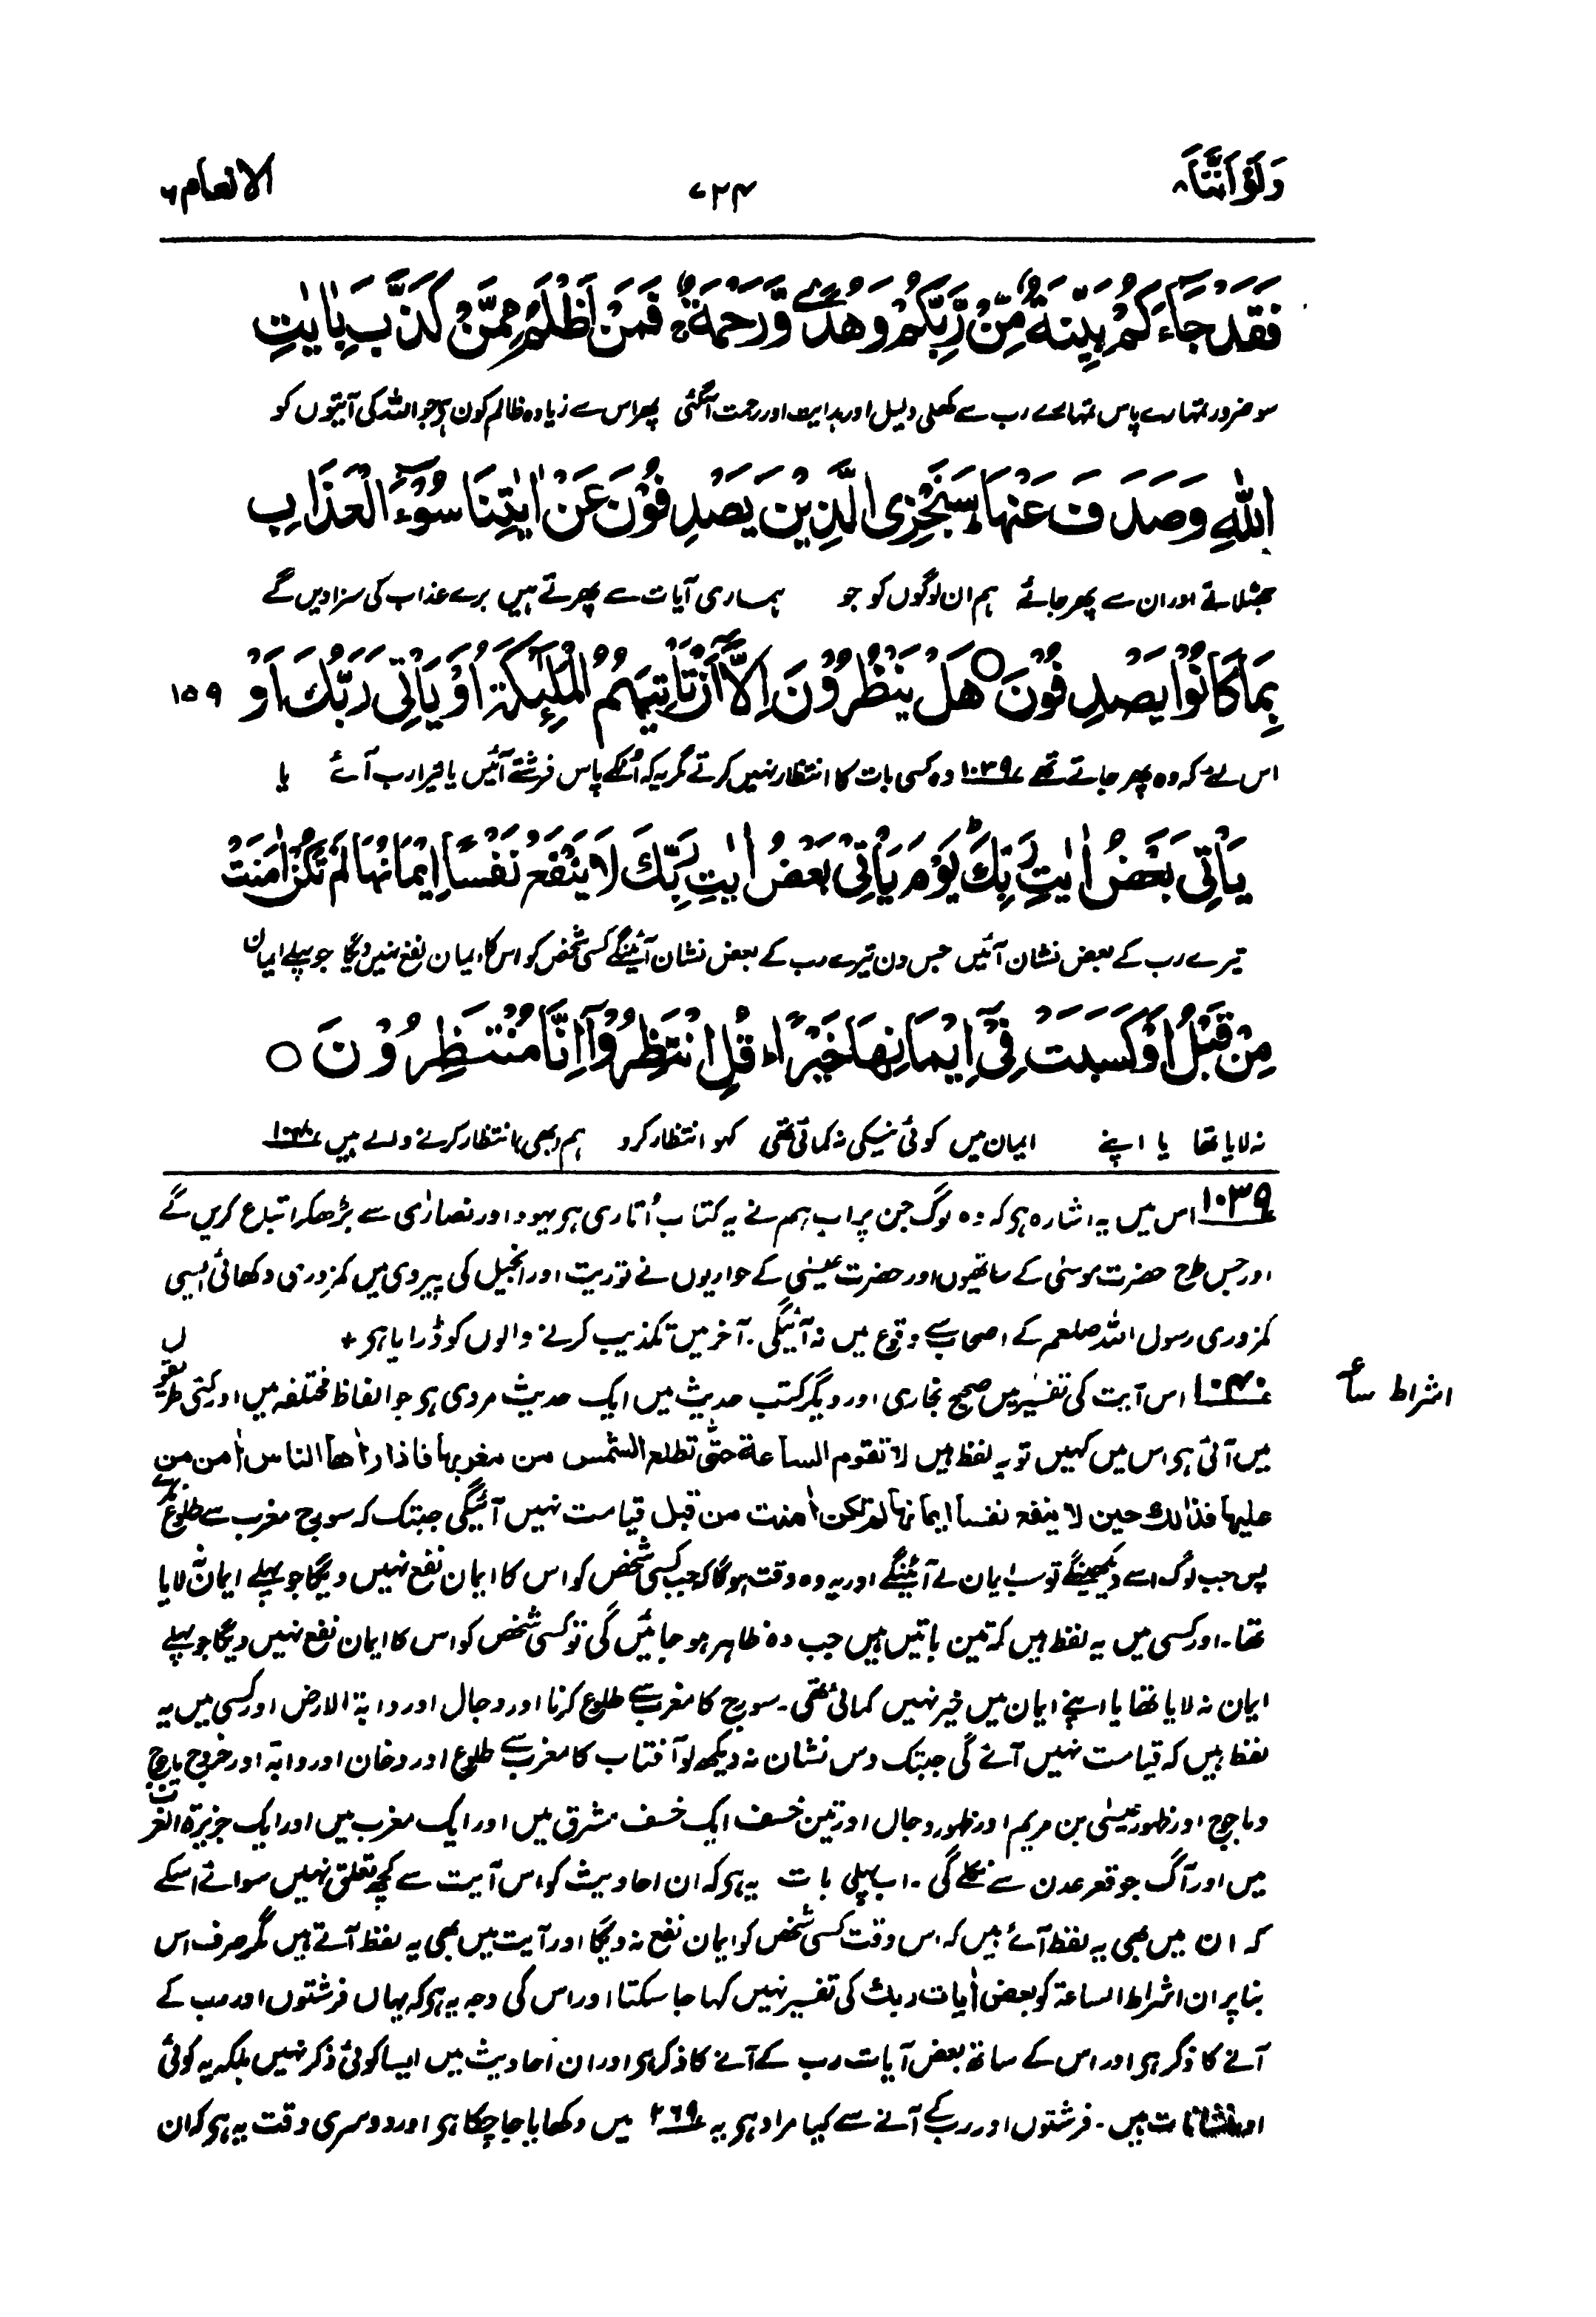 ولواننا ۸
۷۲۴
الانعام ۶
فَقَدْ جَآءَكُمْ بَيِّنَةٌ مِّنْ رَّبِّكُمْ وَهُدًى وَّرَحْمَةٌ ۚ فَمَنْ اَظْلَمُ مِمَّنْ كَذَّبَ بِاٰيٰتِ
سو ضرور تمہارے پاس تمہارے رب سے کھلی دلیل اور ہدایت اور رحمت آگئی پھر اس سے زیادہ ظالم کون ہو جو اللہ کی آیتوں کو
اللّٰهِ وَصَدَفَ عَنْهَا ۚ سَنَجْزِى الَّذِيْنَ يَصْدِفُوْنَ عَنْ اٰيٰتِنَا سُوْٓءَ الْعَذَابِ
جھٹلائے اور ان سے پھر جائے ہم ان لوگوں کو جو ہماری آیات سے پھرتے ہیں برے عذاب کی سزا دیں گے
بِمَا كَانُوْا يَصْدِفُوْنَ ○ هَلْ يَنْظُرُوْنَ اِلَّآ اَنْ تَاْتِيَهُمُ الْمَلٰٓئِكَةُ اَوْ يَاْتِىَ رَبُّكَ اَوْ ۱۵۹
اس لئے کہ وہ پھر جاتے تھے ۱۰۳۹ وہ کسی بات کا انتظار نہیں کرتے مگر یہ کہ اُنکے پاس فرشتے آئیں یا تیرا رب آئے یا
يَاْتِىَ بَعْضُ اٰيٰتِ رَبِّكَ ؕ يَوْمَ يَاْتِىْ بَعْضُ اٰيٰتِ رَبِّكَ لَا يَنْفَعُ نَفْسًا اِيْمَانُهَا لَمْ تَكُنْ اٰمَنَتْ
تیرے رب کے بعض نشان آئیں جس دن تیرے رب کے بعض نشان آئینگے کسی شخص کو اس کا ایمان نفع نہیں دیگا جو پہلے ایمان
مِنْ قَبْلُ اَوْ كَسَبَتْ فِىْٓ اِيْمَانِهَا خَيْرًا ؕ قُلِ انْتَظِرُوْٓا اِنَّا مُنْتَظِرُوْنَ ○
نہ لایا تھا یا اپنے ایمان میں کوئی نیکی نہ کمائی تھی کہو انتظار کرو ہم (بھی) انتظار کرنے والے ہیں ۱۰۴۰
۱۰۳۹ اس میں یہ اشارہ ہو کہ وہ لوگ جن پر اب ہم نے یہ کتاب اُتاری ہو یہود اور نصاریٰ سے بڑھکر اتباع کریں گے
اور جس طرح حضرت موسٰی کے ساتھیوں اور حضرت عیسٰی کے حواریوں نے توریت اور انجیل کی پیروی میں کمزوری دکھائی ایسی
کمزوری رسول اللہ صلعم کے اصحاب سے وقوع میں نہ آئیگی۔ آخر میں تکذیب کرنے والوں کو ڈرایا ہو +
اشراط ساعۃ
۱۰۴۰ اس آیت کی تفسیر میں صحیح بخاری اور دیگر کتب حدیث میں ایک حدیث مروی ہو جو الفاظ مختلفہ میں اور کئی طریقوں
میں آئی ہو اس میں کہیں تو یہ لفظ ہیں لا تقوم الساعة حتّٰی تطلع الشمس من مغربها فاذا راٰها الناس اٰمن من
علیها فذٰلك حین لا ینفع نفسا ایمانها لم تکن اٰمنت من قبل قیامت نہیں آئیگی جبتک کہ سورج مغرب سے طلوع نہ کرے
پس جب لوگ اسے دیکھینگے تو سب ایمان لے آئینگے اور یہ وہ وقت ہو گا کہ جب کسی شخص کو اس کا ایمان نفع نہیں دیگا جو پہلے ایمان نہ لایا
تھا۔ اور کسی میں یہ لفظ ہیں کہ تین باتیں ہیں جب وہ ظاہر ہو جائیں گی تو کسی شخص کو اس کا ایمان نفع نہیں دیگا جو پہلے
ایمان نہ لایا تھا یا اپنے ایمان میں خیر نہیں کمائی تھی۔ سورج کا مغرب سے طلوع کرنا اور دجال اور دابة الارض اور کسی میں یہ
لفظ ہیں کہ قیامت نہیں آنے گی جبتک دس نشان نہ دیکھ لو آفتاب کا مغرب سے طلوع اور دخان اور دابہ اور خروج یاجوج
وماجوج اور ظہور عیسٰی بن مریم اور ظہور دجال اور تین خسف ایک خسف مشرق میں اور ایک مغرب میں اور ایک جزیرۃ العرب
میں اور آگ جو قعر عدن سے نکلے گی۔ اب پہلی بات یہ ہو کہ ان احادیث کو اس آیت سے کچھ تعلق نہیں سوائے اسکے
کہ ان میں بھی یہ لفظ آئے ہیں کہ اس وقت کسی شخص کو ایمان نفع نہ دیگا اور آیت میں بھی یہ لفظ آتے ہیں مگر صرف اس
بنا پر ان اشراط الساعۃ کو بعض اٰیات ربك کی تفسیر نہیں کہا جا سکتا اور اس کی وجہ یہ ہو کہ یہاں فرشتوں اور رب کے
آنے کا ذکر ہو اور اس کے ساتھ بعض آیات رب کے آنے کا ذکر ہو اور ان احادیث میں ایسا کوئی ذکر نہیں بلکہ یہ کوئی
اور نشانات ہیں۔ فرشتوں اور رب کے آنے سے کیا مراد ہو یہ ۲۶۹ میں دکھایا جا چکا ہو اور دوسری دقت یہ ہو کہ ان